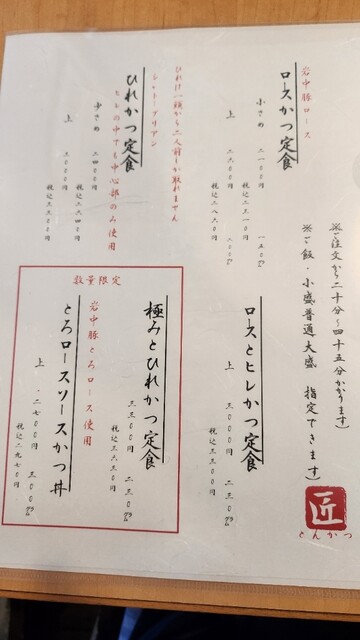 ※ご注文から二十分〜四十五分かかります)
※ご飯・小盛普通大盛 指定できます)
匠
とんかつ
岩中豚ロース
ロースかつ定食
小さめ 二一〇〇円 一五〇㌘
税込二三一〇円
上 二六〇〇円
税込二八六〇円
ロースとヒレかつ定食
上 三〇〇〇円 二三〇㌘
税込三三〇〇円
ひれは一頭から二人前しか取れません
シャトーブリアン
ひれかつ定食
ヒレの中でも中心部のみ使用
少さめ 二四〇〇円
税込二六四〇円
上 三〇〇〇円
税込三三〇〇円
数量限定
極みとひれかつ定食
三三〇〇円 二三〇㌘
税込三六三〇円
岩中豚とろロース使用
とろロースソースかつ丼
上 二七〇〇円 三〇〇㌘
税込二九七〇円